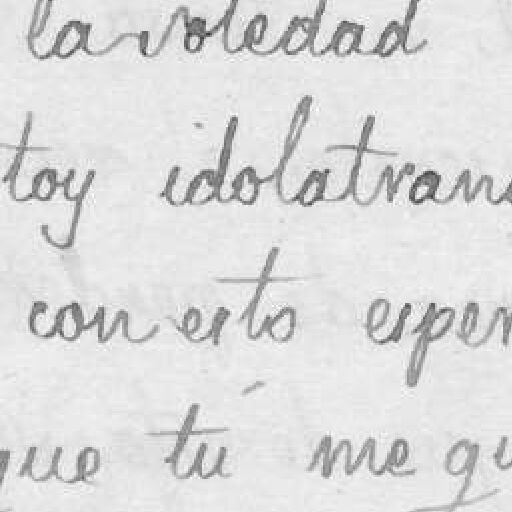 la soledad
toy idolatran
con esto esper
que tú me qu